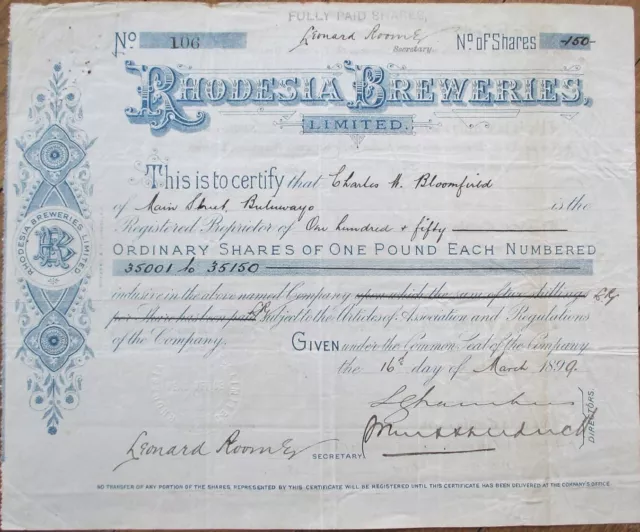 FULLY PAID SHARES,
No 106 Leonard Room No. of Shares -150-
Secretary.
RHODESIA BREWERIES,
LIMITED.
This is to certify that Charles W. Bloomfield
of Main Street, Buluwayo is the
Registered Proprietor of One hundred & fifty
ORDINARY SHARES OF ONE POUND EACH NUMBERED
35001 to 35150
inclusive in the above named Company upon which the sum of two shillings
per Share has been paid subject to the Articles of Association and Regulations
of the Company. GIVEN under the Common Seal of the Company
the 16th day of March 1899.
RHODESIA BREWERIES LIMITED
RB
DIRECTORS.
Leonard Room SECRETARY
NO TRANSFER OF ANY PORTION OF THE SHARES REPRESENTED BY THIS CERTIFICATE WILL BE REGISTERED UNTIL THIS CERTIFICATE HAS BEEN DELIVERED AT THE COMPANY'S OFFICE.